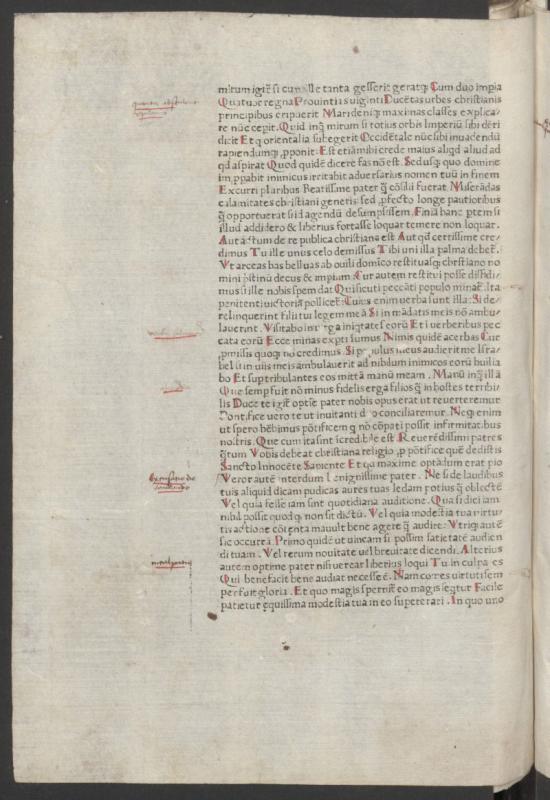 mirum igit̃ si cum ille tanta gesserit geratq; Cum duo impia
Quatuor regna Prouintias uiginti Ducẽtas urbes christianis
principibus eripuerit Mari deniq; maximas classes explica-
re nũc cepit. Quid inq̃ mirum si totius orbis Imperiũ sibi deri
dicit Et q orientalia subegerit Occidẽtale nũc sibi inuadendũ
rapiendumq; ,pponit. Est etiã mihi crede maius aliqd aliud ad
qd aspirat Quod quidẽ dicere fas nõ est. Sed usq; quo domine
im,pperabit inimicus irritabit aduersarius nomen tuũ in finem
Excurri pluribus Beatissime pater q̃ cõsilii fuerat. Miserãdas
calamitates christiani generis sed ,pfecto longe pautioribus
q̃ opportuerat si id agendũ desumpsissem. Finiã hanc ptem si
illud addidero & liberius fortasse loquar temere non loquar.
Aut actum de re publica christiana est Aut qd̃ certissime cre-
dimus Tu ille unus celo demissus Tibi uni illa palma debet̃.
Vt arceas has belluas ab ouili domico restituasq; christiano no
mini pistinũ decus & impium. Cur autem restitui posse diffidi-
mus si ille nobis spem dat Qui sicuti peccãti populo minat̃. Ita
penitenti uictoriã pollicet̃. Cuius enim uerba sunt illa. Si de-
relinquerint filii tui legem meã Si in mãdatis meis nõ ambu-
lauerint. Visitabo in uirga iniqtates eorũ Et i uerberibus pec
cata eorũ Ecce minas expti sumus Nimis quidẽ acerbas Cur
,pmissis quoq; nõ credimus. Si populus meus audierit me Isra-
hel si in uiis meis ambulauerit ad nihilum inimicos eorũ humilia
bo Et sup tribulantes eos mittã manũ meam. Manũ inq̃ illã
Que semp fuit nõ minus fidelis erga filios q̃ in hostes terribi-
lis Duce te igit̃ optĩe pater nobis opus erat ut reuerteremur
Pontifice uero te ut inuitanti deo conciliaremur. Neq; enim
ut spero hẽbimus põtificem q nõ cõpati possit infirmitatibus
nostris. Que cum ita sint ĩcredibile est Reuerẽdissimi patres
q̃tum Vobis debeat christiana religio ,p põtifice quẽ dedistis
Sancto Innocẽte Sapiente Et qa maxime optãdum erat pio
Veror autẽ interdum benignissime pater. Ne si de laudibus
tuis aliquid dicam pudicas aures tuas ledam potius q̃ oblectẽ
Vel quia felle iam sunt quotidiana auditione. Qua si dici iam
nihil possit quod q; non sit dictũ. Vel quia modestia tua uirtu-
tis actione cõtenta mauult bene agere q̃ audire. Vtriq; autẽ
sic occurrã. Primo quidẽ ut uincam si possim satietatẽ audien
di tuam. Vel rerum nouitate uel breuitate dicendi. Alterius
autem optime pater nisi uerear liberius loqui Tu in culpa es
Qui benefacit bene audiat necesse ẽ. Nam comes uirtutis sem
per fuit gloria. Et quo magis spernit̃ eo magis seqtur Facile
patietur equissima modestia tua in eo superari. In quo uno